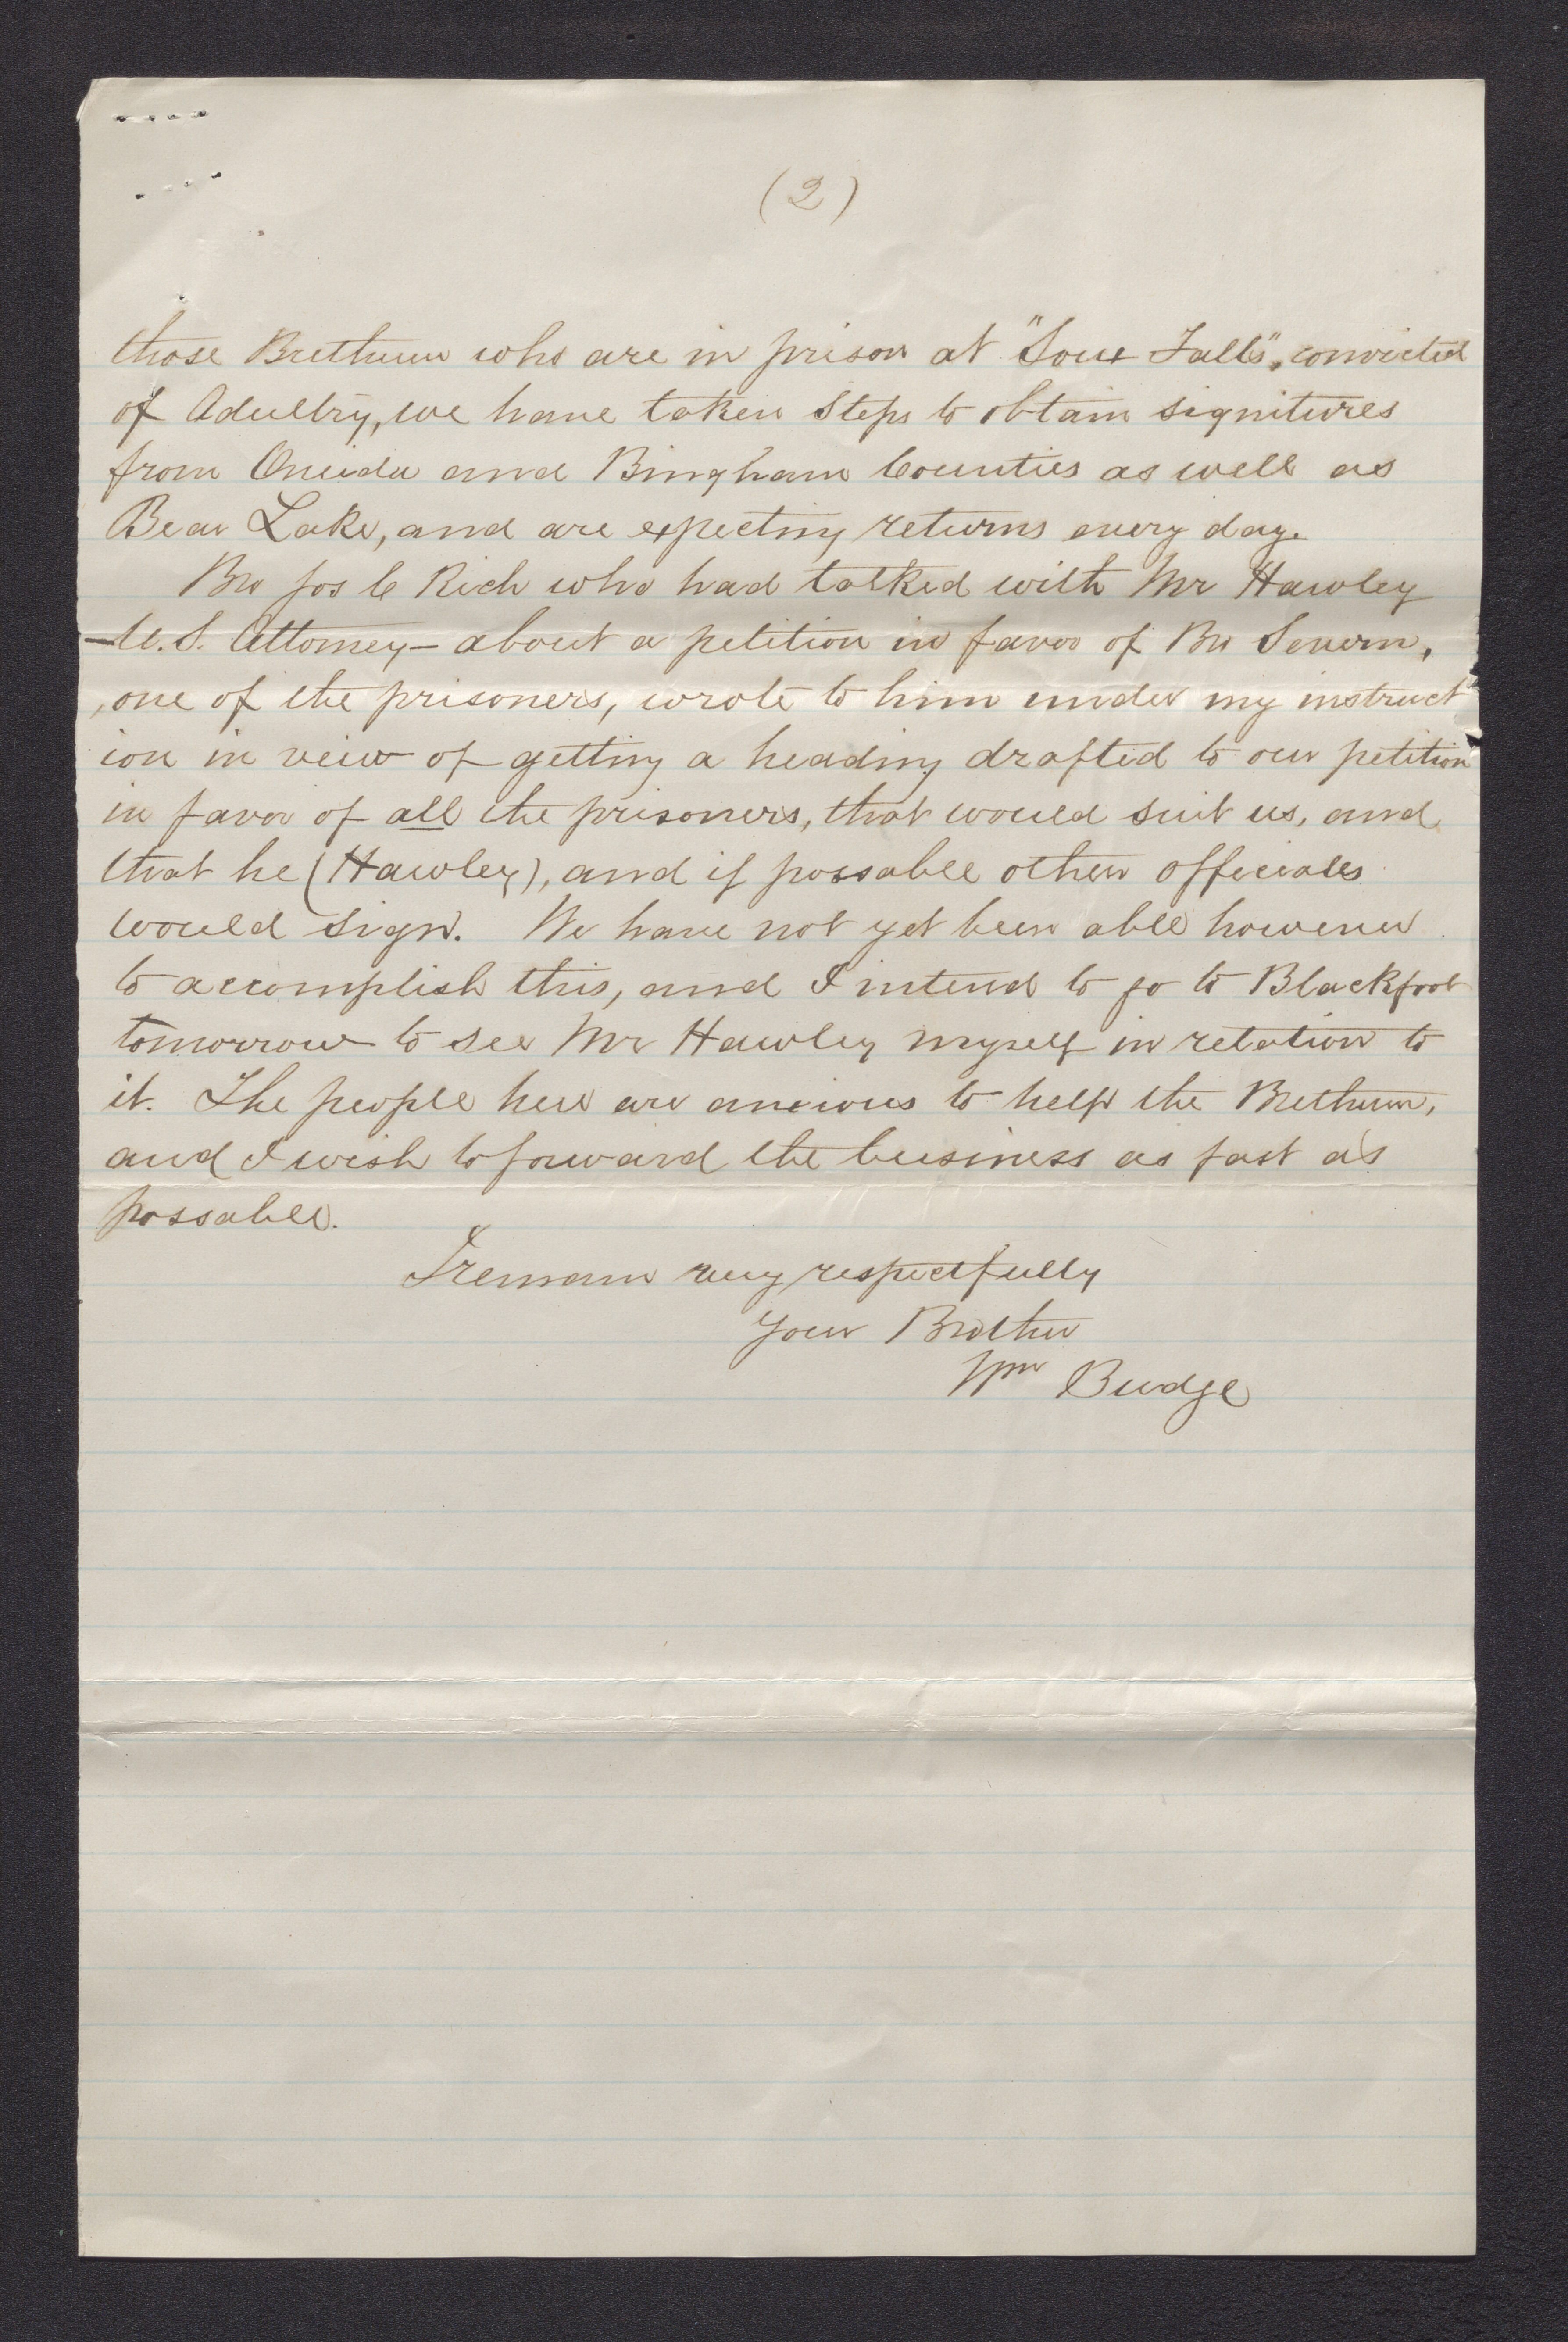 (2)
those Brethren who are in prison at "Soux Falls", convicted
of Adultry, we have taken steps to obtain signitures
from Oneida and Bingham Counties as well as
Bear Lake, and are expecting returns every day.
Bro Jos C Rich who had talked with Mr Hawley
—U.S. Attorney— about a petition in favor of Bro Severn,
, one of the prisoners, wrote to him under my instruct
ion in veiw of getting a heading drafted to our petition
in favor of all the prisoners, that would suit us, and
that he (Hawley), and if possable other officials
would sign. We have not yet been able however
to accomplish this, and I intend to go to Blackfoot
tomorrow to see Mr Hawley myself in relation to
it. The people here are anxious to help the Brethren,
and I wish to forward the business as fast as
possable.
I remain very respectfully
Your Brother
Wm Budge